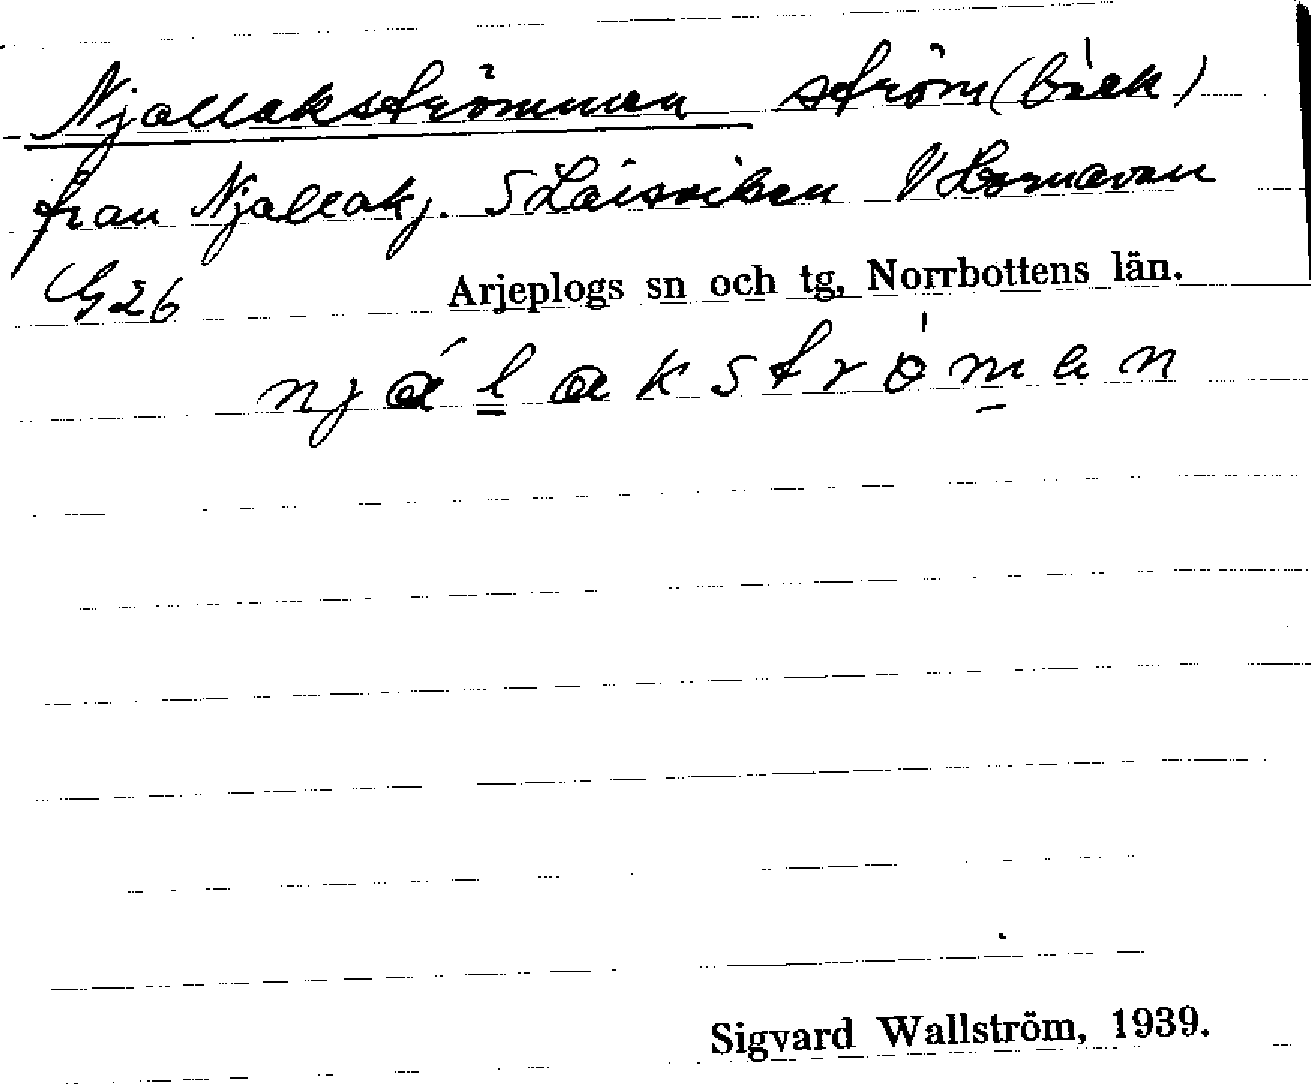 Njallakströmmen ström (bäck)
från Njallakj. S Laisviken V Hornavan
G26 Arjeplogs sn och tg, Norrbottens län.
njálakströman
Sigvard Wallström, 1939.